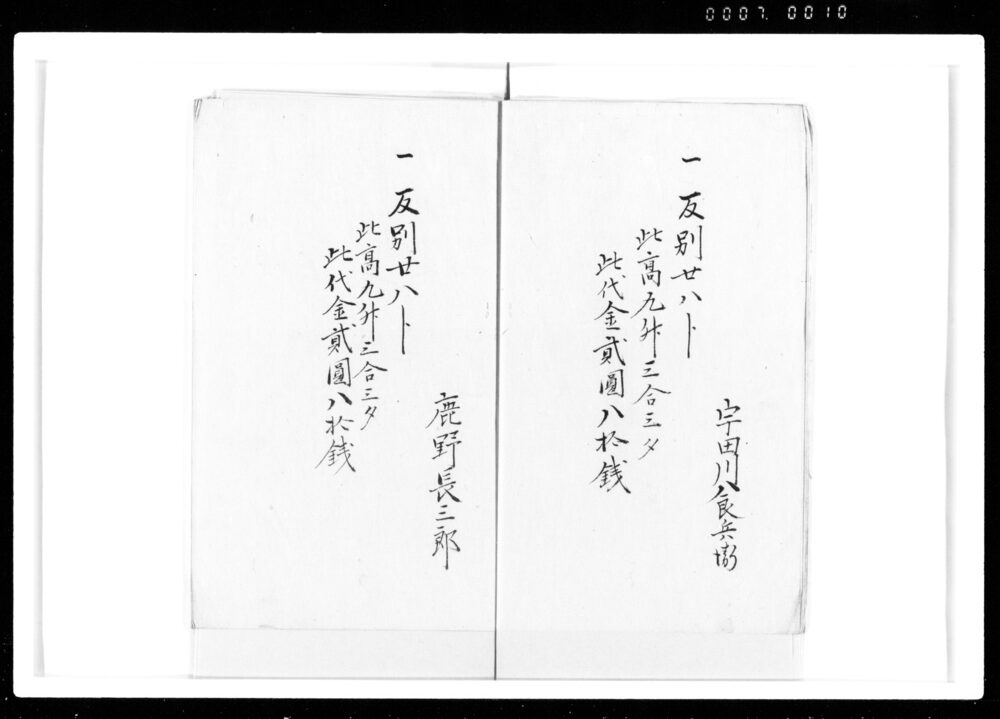 0007 0010
宇田川八良兵衛
一反別廿八卜
此高九升三合三夕
此代金貳圓八拾銭
鹿野長三郎
一反別廿八卜
此高九升三合三夕
此代金貳圓八拾銭